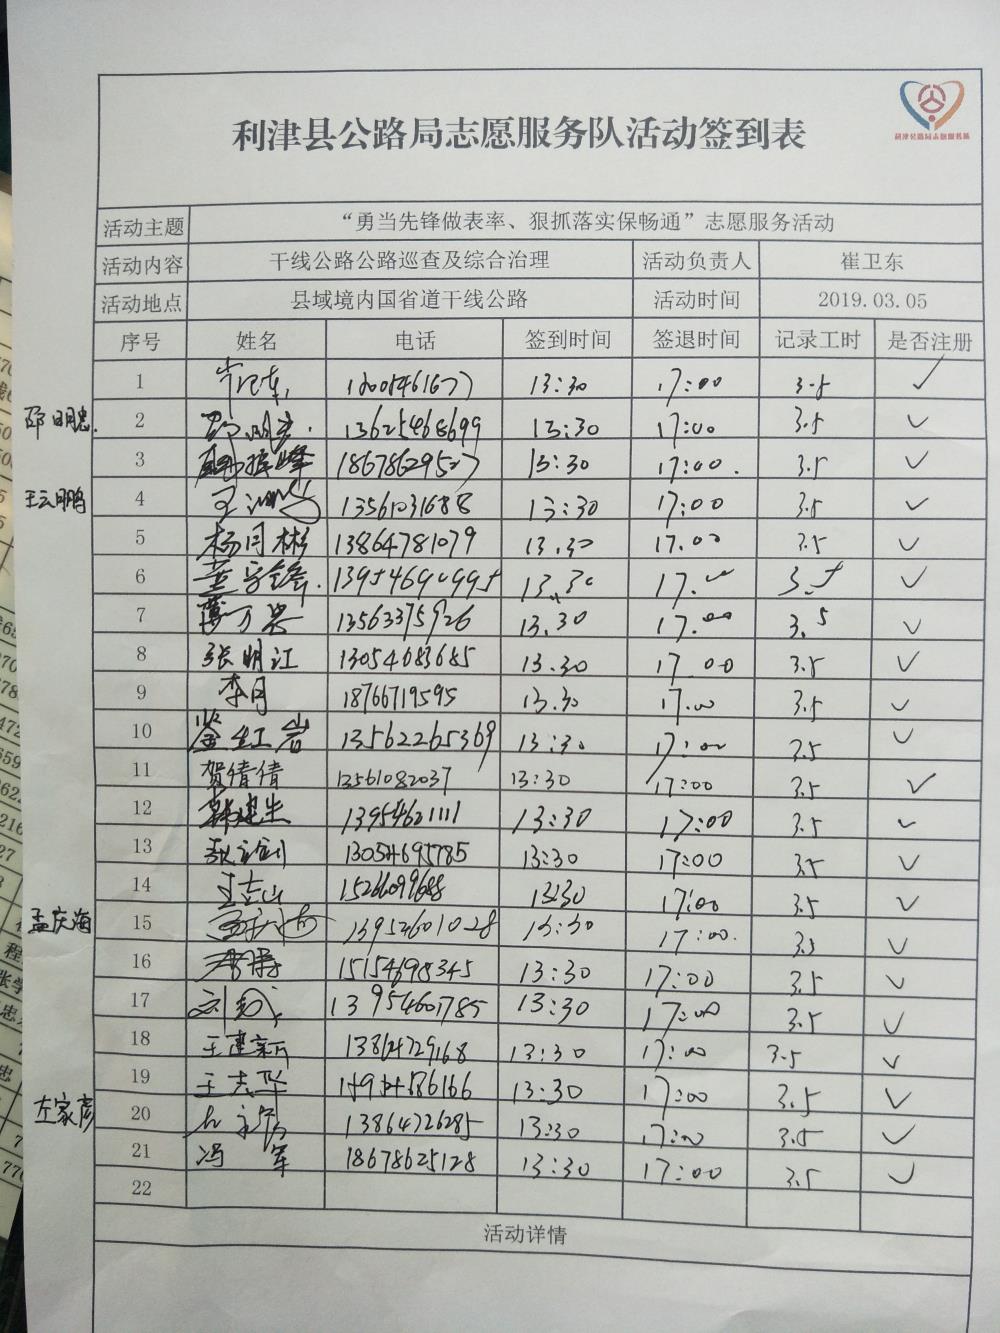 利津县公路局志愿服务队活动签到表
利津县公路局志愿服务队
活动主题 “勇当先锋做表率、狠抓落实保畅通”志愿服务活动
活动内容 干线公路公路巡查及综合治理 活动负责人 崔卫东
活动地点 县域境内国省道干线公路 活动时间 2019.03.05
序号 姓名 电话 签到时间 签退时间 记录工时 是否注册
1 13:30 17:00 3.5 ✓
邵明忠. 2 邵明忠. 13625468699 13:30 17:00 3.5 ✓
3 13:30 17:00. 3.5 ✓
王云鹏 4 13561031688 13:30 17:00 3.5 ✓
5 杨同彬 13864781079 13.30 17.00 3.5 ✓
6 13954690995 13.30 17.00 3.5 ✓
7 薄万岩 13563375926 13.30 17.00 3.5 ✓
8 张明江 13054683685 13.30 17.00 3.5 ✓
9 李月 18766719595 13.30 17.00 3.5 ✓
10 13562265369 13:30 17:00 3.5 ✓
11 贺倩倩 13561082037 13:30 17:00 3.5 ✓
12 韩建生 13954621111 13:30 17:00 3.5 ✓
13 13054695785 13:30 17:00 3.5 ✓
14 王志山 15266099688 13:30 17:00 3.5 ✓
孟庆海 15 孟庆海 13954601028 13:30 17:00. 3.5 ✓
16 15154698345 13:30 17:00 3.5 ✓
17 13954601785 13:30 17:00 3.5 ✓
18 王建新 13864729168 13:30 17:00 3.5 ✓
19 王志华 13:30 17:00 3.5 ✓
左家彦 20 13864726285 13:30 17:00 3.5 ✓
21 冯军 18678625128 13:30 17:00 3.5 ✓
22
活动详情